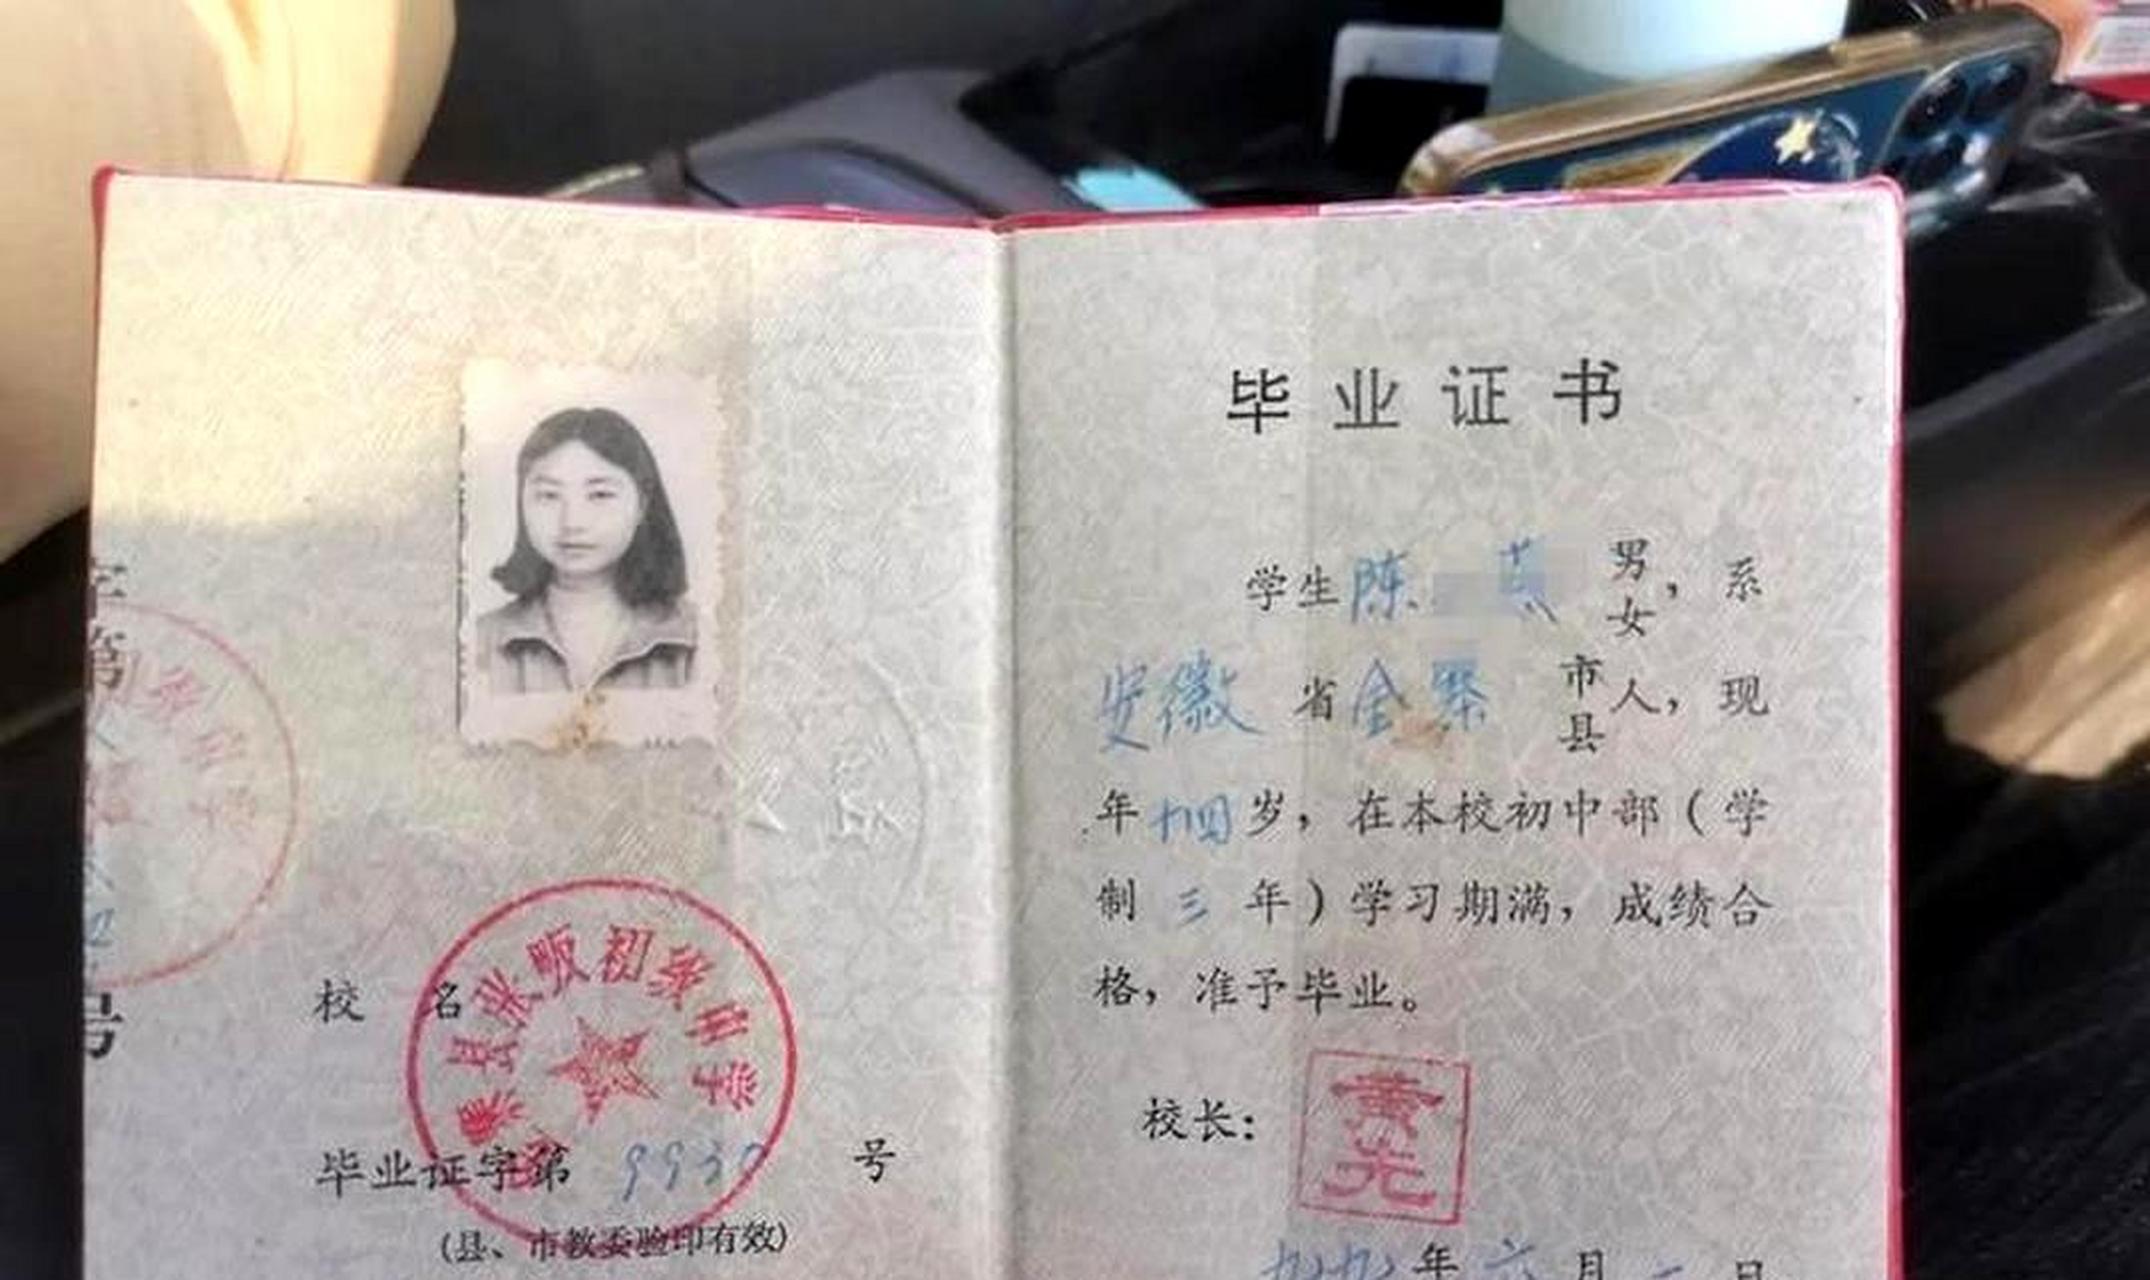 校 名
毕业证字第 9930 号
(县、市教委验印有效)
毕业证书
学生陈 燕 男女，系
安徽 省 金寨 市县人，现
年十四岁，在本校初中部（学
制 三 年）学习期满，成绩合
格，准予毕业。
校长：
黄光
九九年六月 日
第
号